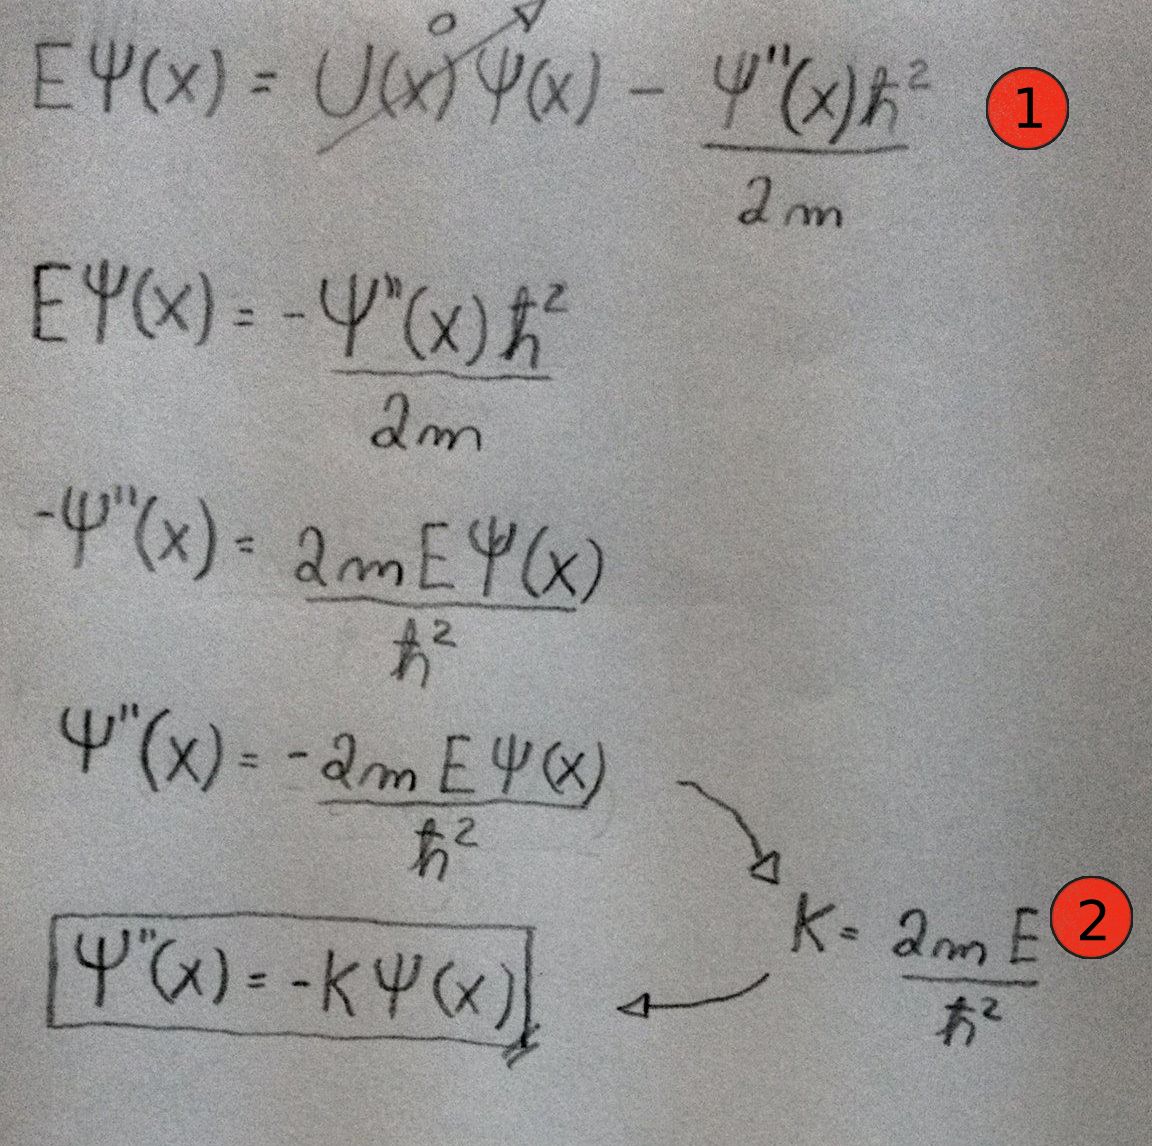 EΨ(x) = U(x)Ψ(x) - Ψ"(x)ħ² 0 1
2m
EΨ(x) = -Ψ"(x)ħ²
2m
-Ψ"(x) = 2mEΨ(x)
ħ²
Ψ"(x) = -2mEΨ(x)
ħ²
K = 2mE 2
ħ²
Ψ"(x) = -KΨ(x)